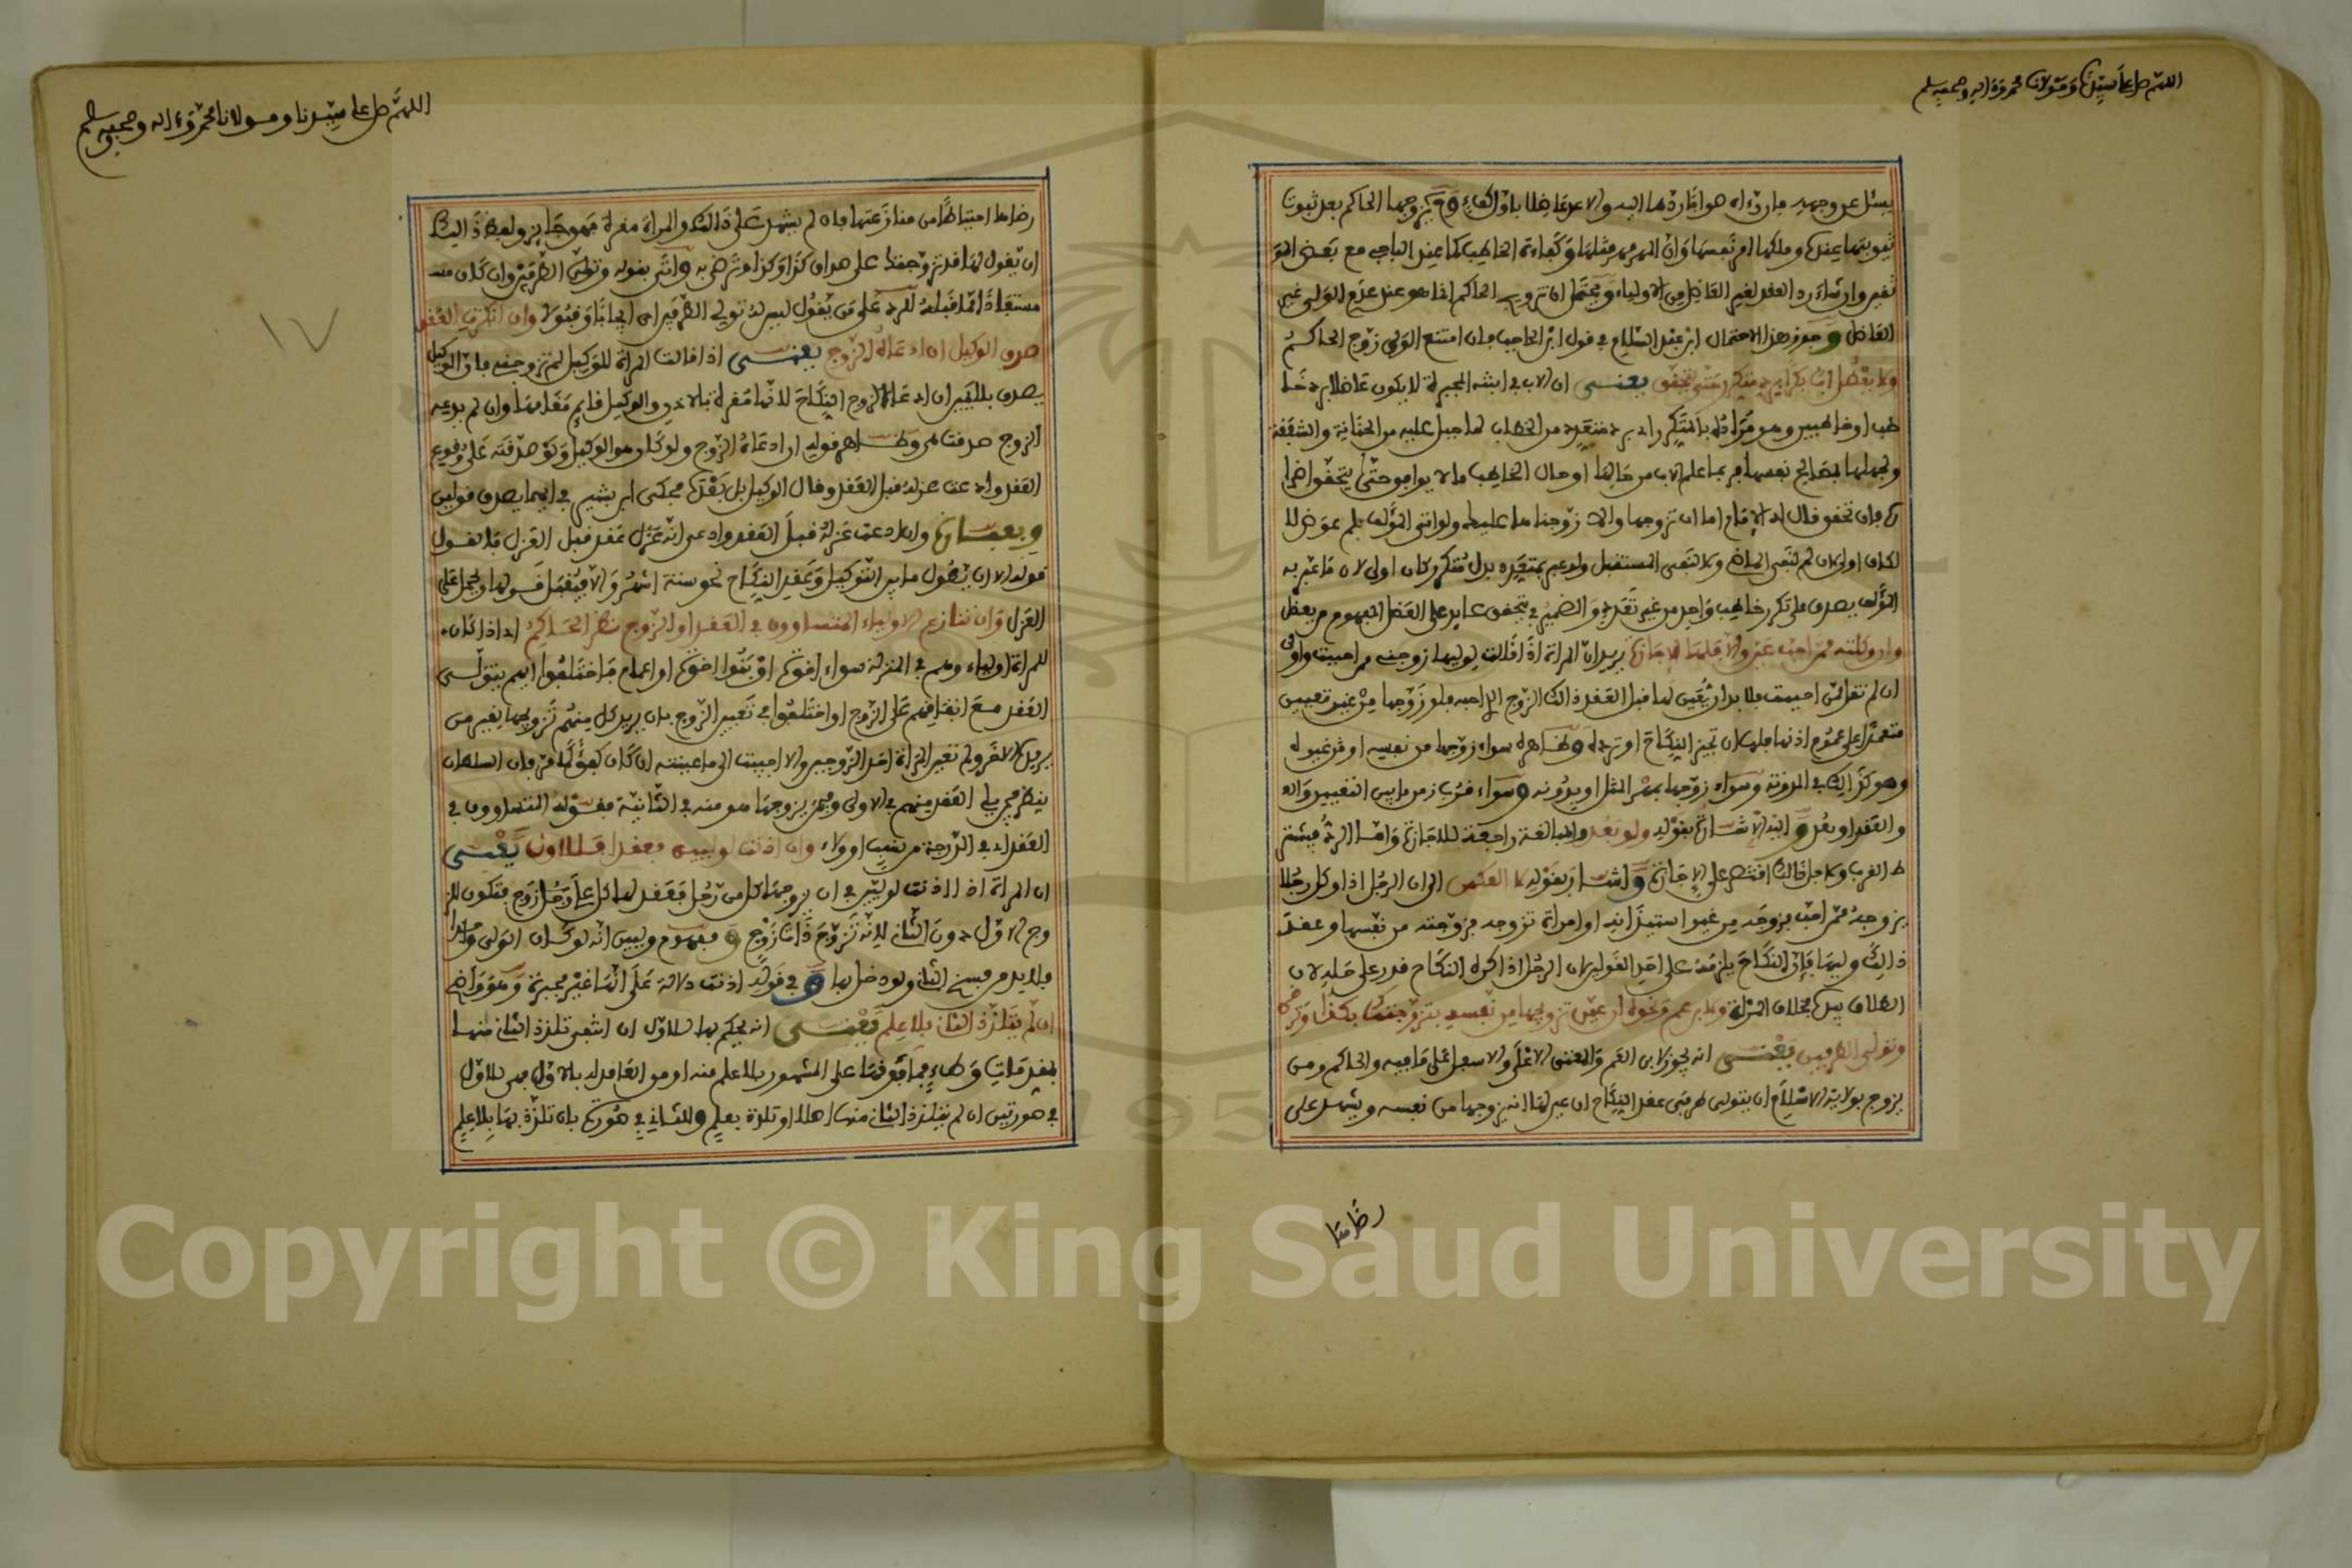 اللهم صل على سيدنا ومولانا محمد وءاله وصحبه وسلم
يسئل عن وجهه فان رءاه صوابا ردها اليه والا عد عاضلا باول كفء وح يزوجها الحاكم بعد ثبوت
ثيوبتها عنده وملكها امر نفسها وان المهر مهر مثلها وكفاءة الخاطب كما عند الباجي مع بعض
العاضل وجوز هذا الاحتمال ابن عبد السلام في قول ابن الحاجب فان امتنع الولي زوج الحاكم
ولا يعضل اب بكرا برد متكرر حتى يتحقق يعني ان الاب في ابنته المجبرة لا يكون عاضلا برد خا
طب او خاطبين وهو مراده بالمتكرر اي برد متعدد من الخطاب لما جبل عليه من الحنانة والشفقة
ولجهلها بمصالح نفسها فربما علم الاب من حالها او حال الخاطب ما لا يوافق حتى يتحقق اضرا
ره فان تحقق قال له الامام اما ان تزوجها والا زوجنا ها عليك ولو اتى المؤلف بلم عوض لا
لكان اولى لان لم لنفي الماضي ولا لنفي المستقبل ولو عبر بمتعدد بدل متكرر كان اولى لان ما عبر به
المؤلف يصدق على تكرر خاطب واحد من غير تعدد والضمير في يتحقق عايد على العضل المفهوم من يعضل
وان وكلته ممن احب عين والا فلها الاجازة يريد ان المراة اذا قالت لوليها زوجني ممن احببت واولى
ان لم تقل ممن احببت فلا بد ان يعين لها قبل العقد ذلك الزوج الذي احبه فلو زوجها من غير تعيين
معتمدا على عموم اذنها فلها ان تجيز النكاح او ترده وظاهره سواء زوجها من نفسه او من غيره
وهو كذلك في المدونة وسواء زوجها بمهر المثل او بدونه وسواء قرب زمن ما بين التعيين والعـ
والعقد او بعد واليه الاشارة بقوله ولو بعد والمبالغة راجعة للاجازة واما الرد فبشر
ط القرب ولاجل ذلك اقتصر على الاجازة واشار بقوله لا العكس الى ان الرجل اذا وكل رجلا
يزوجه ممن احب فزوجه من غير استيذانه او امراة تزوجه فزوجته من نفسها وعقد
ذلك وليها فان النكاح يلزمه على احد القولين لان الرجل اذا كره النكاح قدر على حله لان
الطلاق بيده بخلاف المراة ولابن عم ونحوه ان عين تزويجها من نفسه بتزوجتك بكذا وترضى
وتولى الطرفين يعني انه يجوز لابن العم والمعتق الاعلى والاسفل على ما فيه والحاكم ومن
يزوج بولاية الاسلام ان يتولى طرفي عقد النكاح ان عين لها انه يزوجها من نفسه ويشهد على
رضاها
اللهم صل على سيدنا ومولانا محمد وءاله وصحبه وسلم
١٧
رضاها احتياطا من منازعتها فان لم يشهد على ذلك والمراة مقرة فهو جايز ولفظ ذلك
ان يقول لها قد تزوجتك على صداق كذا وكذا وترضى به وانتى بقوله وتولى الطرفين وان كان
مستفادا مما قبله للرد على من يقول ليس له تولي الطرفين اي ايجابا وقبولا وان انكرت العقد
صدق الوكيل ان ادعاه الزوج يعني اذا قالت المراة للوكيل لم تزوجني فان الوكيل
يصدق بلا يمين ان ادعا الزوج النكاح لانها مقرة بالاذن والوكيل قايم مقامها وان لم يدعه
الزوج صدقت هي وظاهر قوله ان ادعاه الزوج ولو كان هو الوكيل ولو صدقته على وقوع
العقد وادعت عزله قبل العقد وقال الوكيل بل بعده فحكى ابن بشير في ايهما يصدق قولين
وبعبارة وان ادعت عزله قبل العقد وادعى انه عزل عقد قبل العزل فالقول
قوله الا ان يطول ما بين التوكيل وعقد النكاح نحو ستة اشهر والا فيقبل قولها ويحمل على
العزل وان تنازع الاولياء المتساوون في العقد او الزوج نظر الحاكم اي اذا كان
للمراة اولياء وهم في المنزلة سواء اخوة او بنوا اخوة او اعمام فاختلفوا ايهم يتولى
العقد مع اتفاقهم على الزوج او اختلفوا في تعيين الزوج بان يريد كل منهم تزويجها بغير من
يريده الاخر ولم تعين المراة احد الزوجين والا اجيبت الى ما عينته ان كان كفؤا فان السلطان
ينظر فيمن يلي العقد منهم في الاولى وفيمن يزوجها هو منه في الثانية فقوله المتساوون في
العقد اي في الدرجة من نسب او ولاء وان اذنت لوليين فعقدا فللاول يعني
ان المراة اذا اذنت لوليين في ان يزوجها كل من رجل فعقد لها كل على رجل زوج فتكون للز
وج الاول دون الثاني لانه تزوج ذات زوج ومفهوم وليين انه لو كان الولي واحدا
فلا بد من فسخ الثاني ولو دخل بها وفي قوله اذنت دلالة على انها غير مجبرة وهو واضح
ان لم يتلذذ الثاني بلا علم يعني انه يحكم بها للاول ان انتفى تلذذ الثاني منها
بمقدمات وطء فما فوقها على المشهور بلا علم منه او من العاقد له بالاول فهي للاول
في صورتين ان لم يتلذذ الثاني منها اصلا او تلذذ بعلم وللثاني في صورة بان تلذذ بها بلا علم
Copyright © King Saud University
195